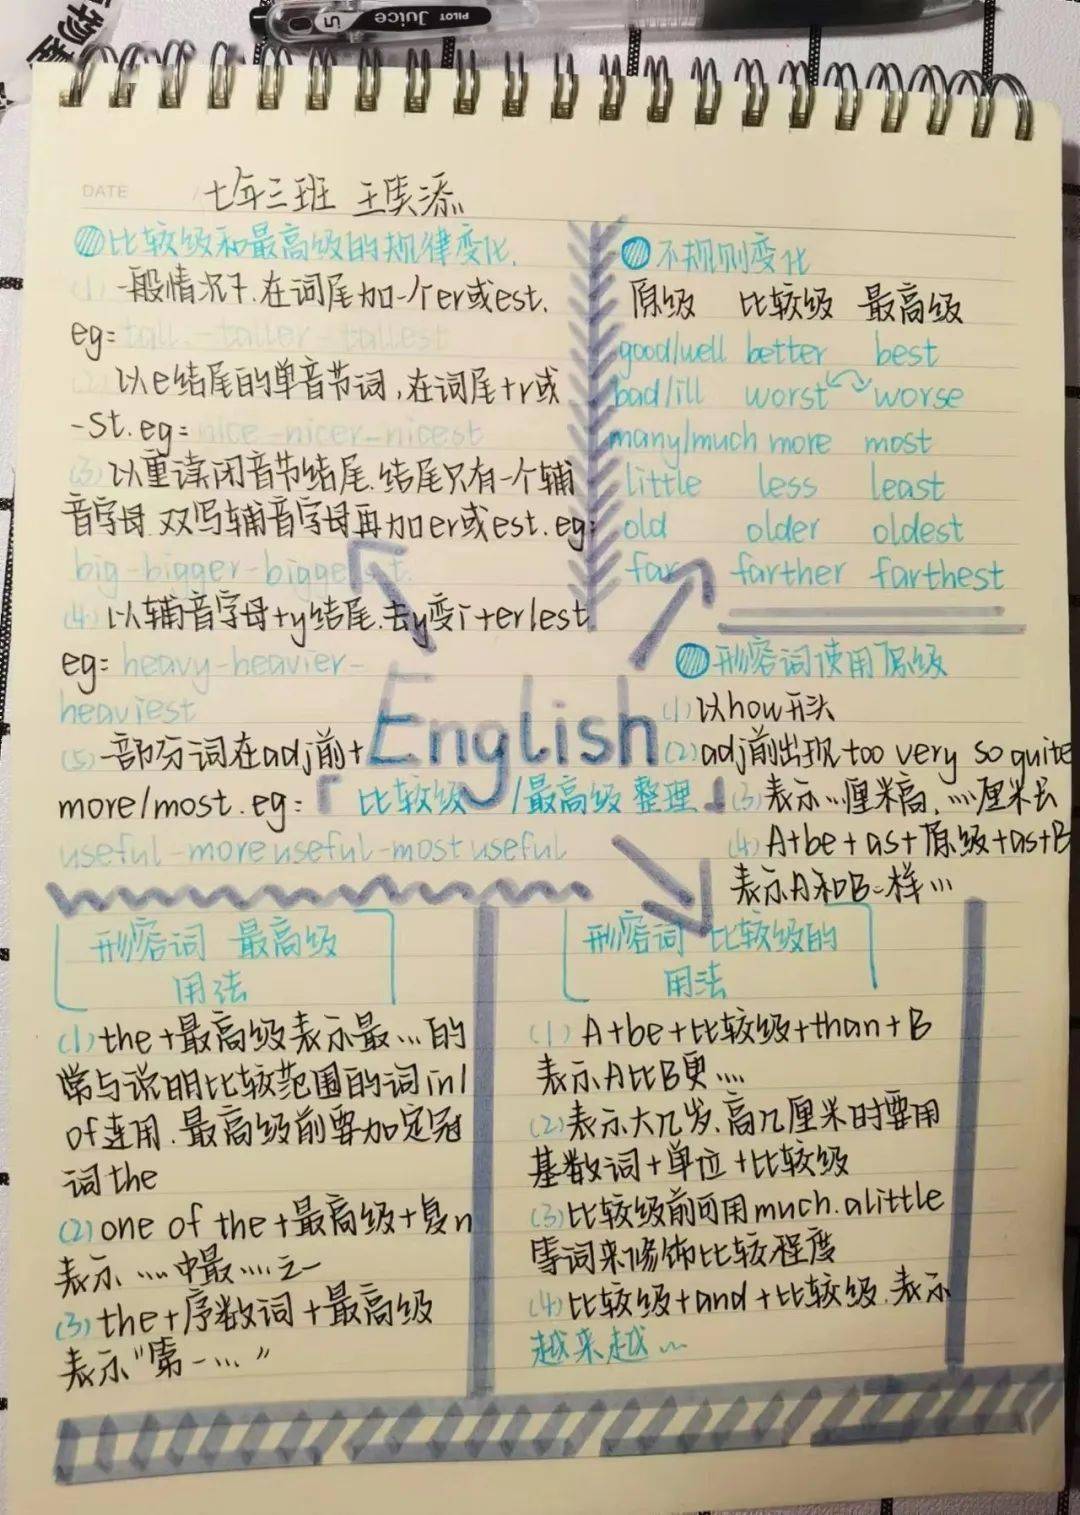 PILOT Juice 05
DATE
七年三班
比较级和最高级的规律变化.
(1) 一般情况下.在词尾加一个er或est.
eg= tall - taller - tallest
(2) 以e结尾的单音节词,在词尾+r或
-st.eg= nice-nicer-nicest
(3) 以重读闭音节结尾.结尾只有一个辅
音字母.双写辅音字母再加er或est.eg:
big-bigger-biggest.
(4) 以辅音字母+y结尾.去y变i+er/est
eg= heavy-heavier-
heaviest
(5) 一部分词在adj前+
more/most.eg:
useful-more useful-most useful
不规则变化
原级 比较级 最高级
good/well better best
bad/ill worst worse
many/much more most
little less least
old older oldest
far farther farthest
English
「比较级/最高级 整理」
形容词使用原级
(1) 以how开头
(2) adj前出现too very so quite
(3) 表示…厘米高,…厘米长
(4) A+be+as+原级+as+B
表示A和B一样…
形容词 最高级
用法
(1) the+最高级表示最…的
常与说明比较范围的词in/
of连用.最高级前要加定冠
词the
(2) one of the+最高级+复n
表示…中最…之一
(3) the+序数词+最高级
表示"第一…"
形容词 比较级的
用法
(1) A+be+比较级+than+B
表示A比B更…
(2) 表示大几岁.高几厘米时要用
基数词+单位+比较级
(3) 比较级前可用much.alittle
等词来修饰比较程度
(4) 比较级+and+比较级.表示
越来越…